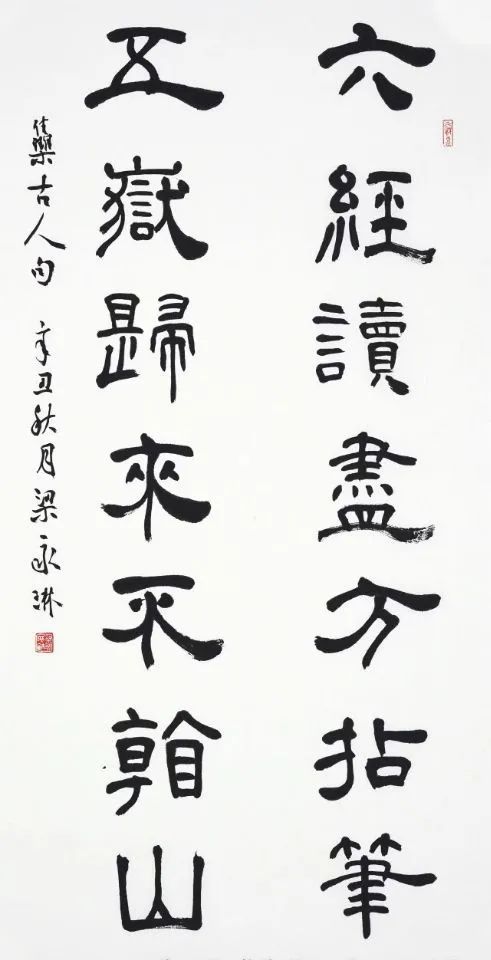 六經讀盡方拈筆
五嶽歸來不看山
雧古人句 辛丑秋月梁永琳